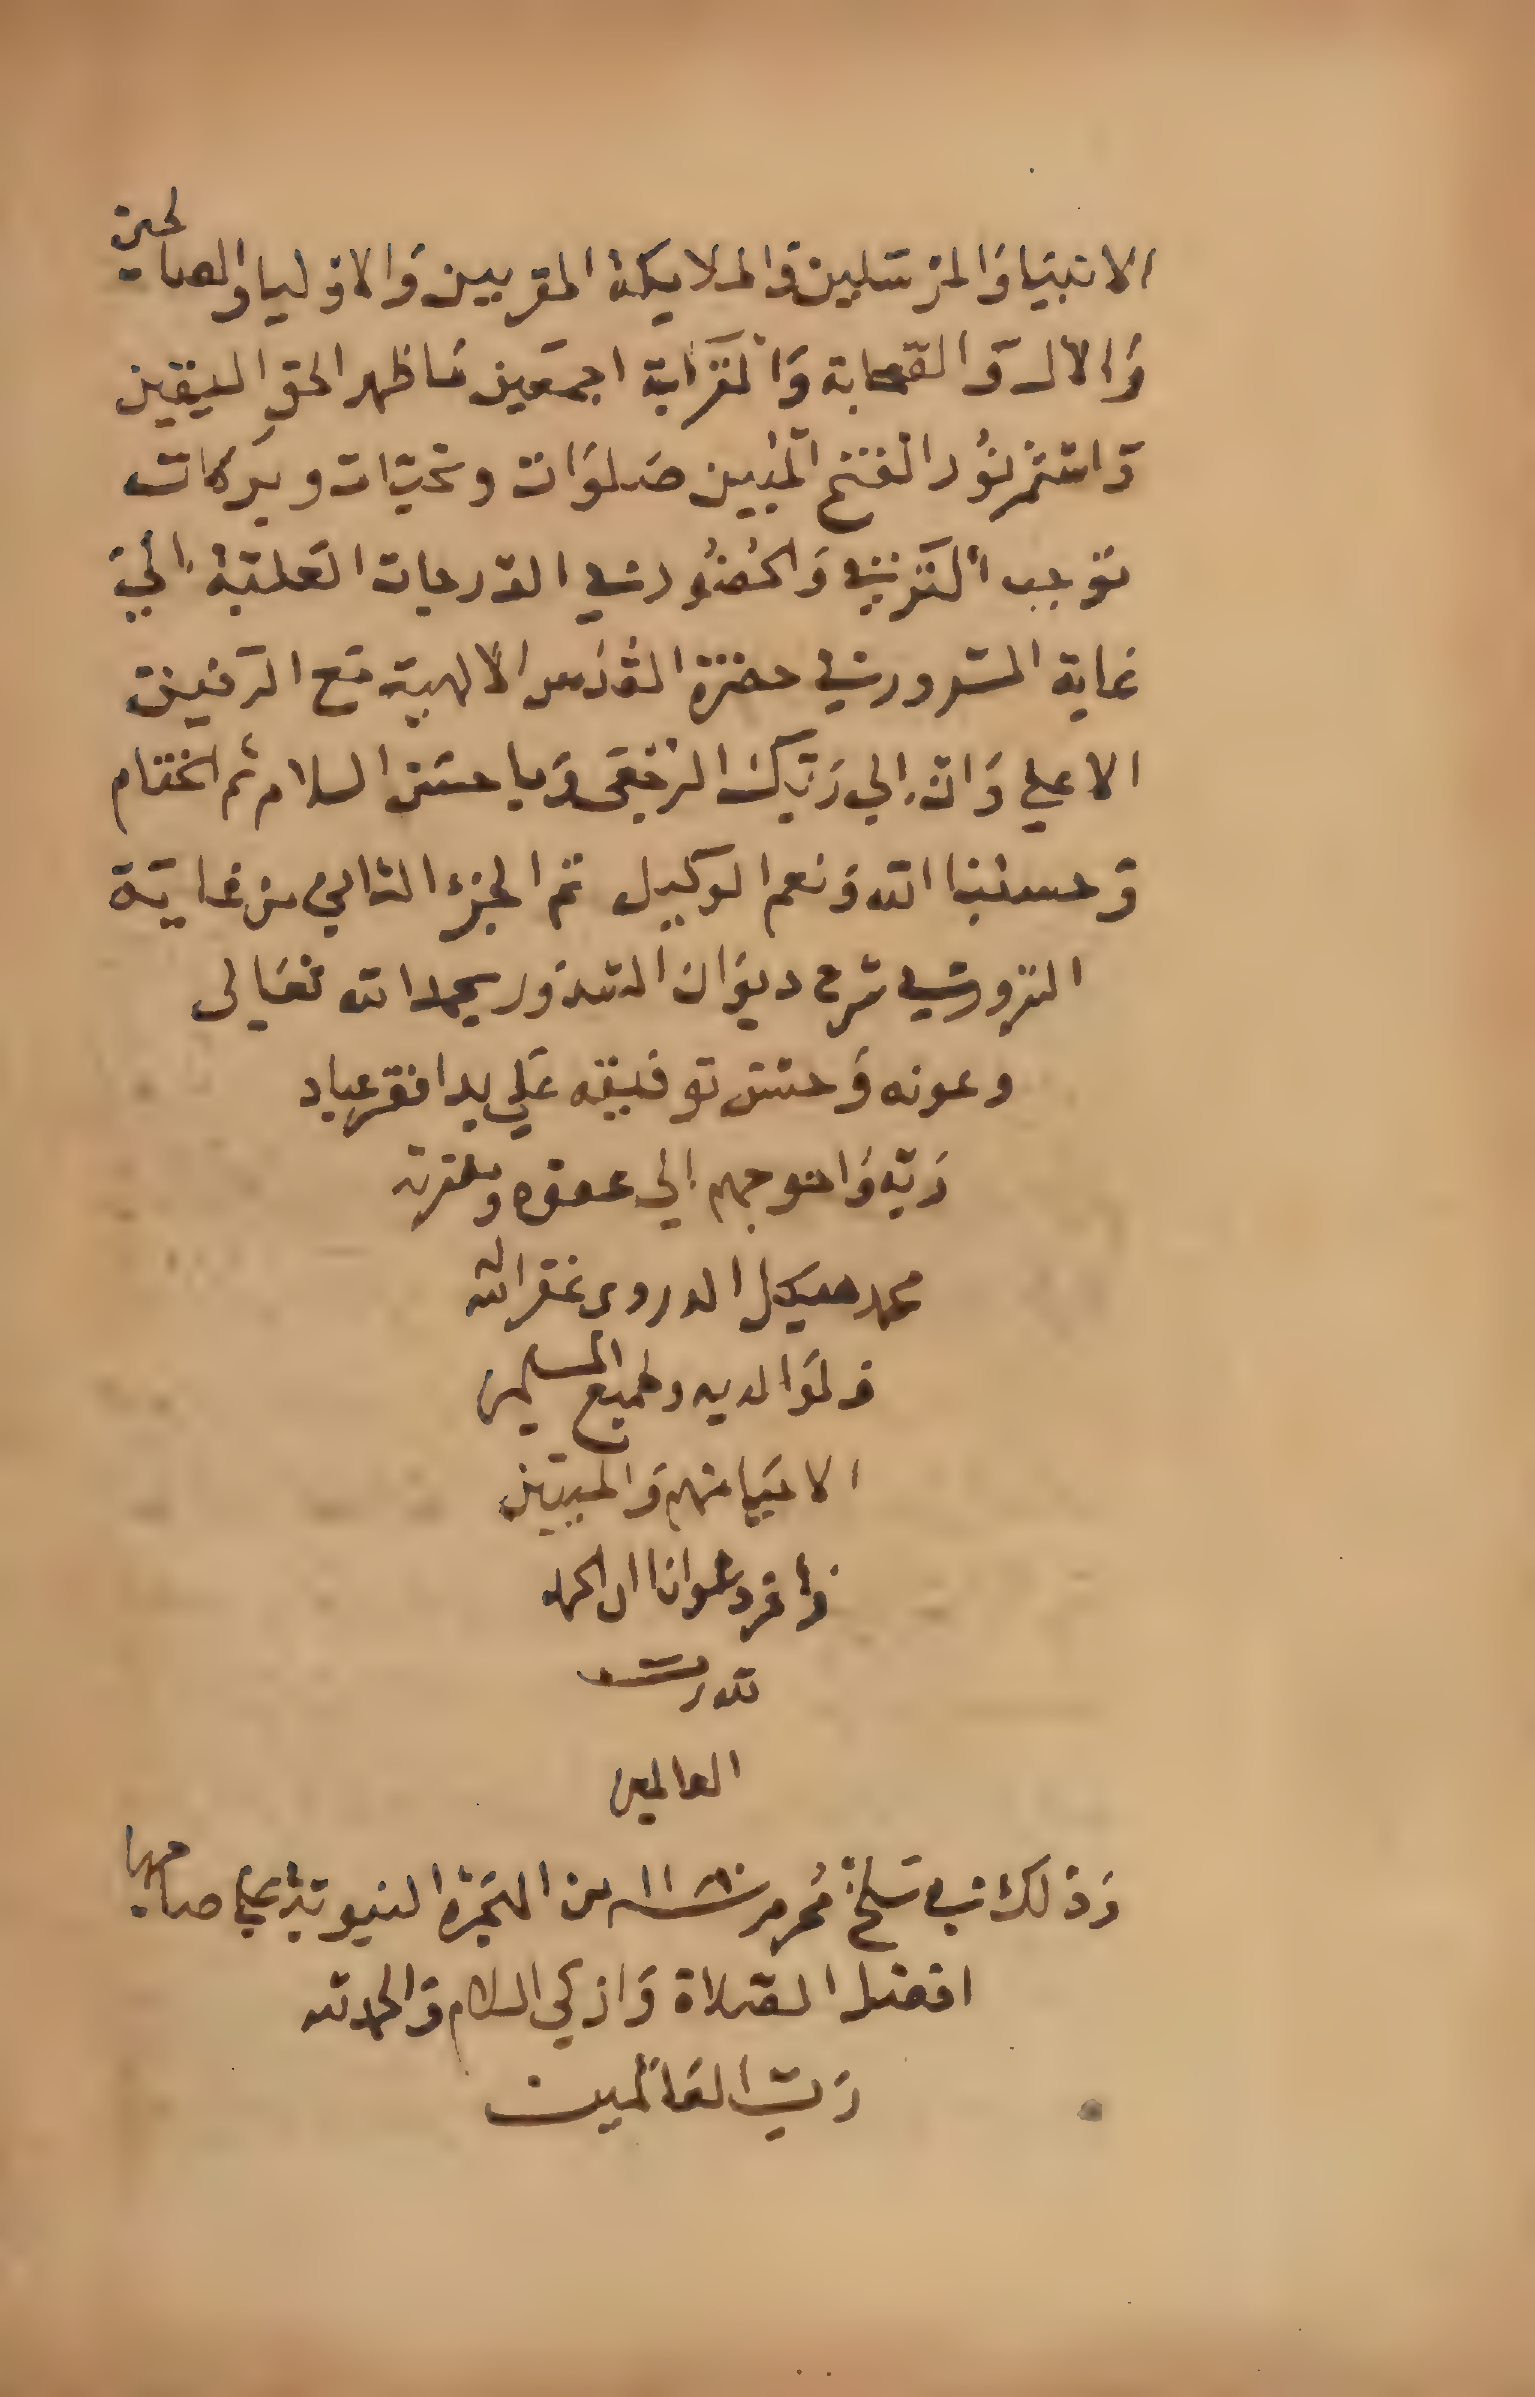 الانبيَا وَالمرْسَلين وَالملايكة المقربين وَالاوْليا والصالحين
وَالآل وَالصّحابة وَالقَرَابة اجمَعين مَا ظهر الحق اليقين
وَاشتَهَر نوُر الفتح المُبين صَلوَات وتحيّات وبركات
توُجب التَنزيه وَالحُضُور في الدّرجات العَليّة إلي
غاية السّرور في حضرة القُدُس الالهيّة مَع الرّفيق
الاعلي وَان إلي رَبّك الرُجعَى وَيا حسَن السلام ثم الختام
وَحسبُنا الله وَنعم الوكيل تم الجزء الثاني من غايَة
السّرور في شرح ديوَان الشذوَر بحمد الله تعَالى
وعونه وَحسْن توفيقه عَلي يد افقر عباد
رَبّه وَاحوجهم إلي عفوه ومغفرته
محمد هيكل الدروي غفر الله له
وَلوَالديه ولجميع المسلمين
الاحيَا منهم وَالميتين
وَاخر دعوانا ان الحمد
لله رب
العالمين
وَذلك في سَلخ مُحرم سنة ١١٨٠ من الهجرَة النبويّة علي صاحبها
افضل الصّلاة وَازكي السلام وَالحمد لله
رَبّ العَالمين